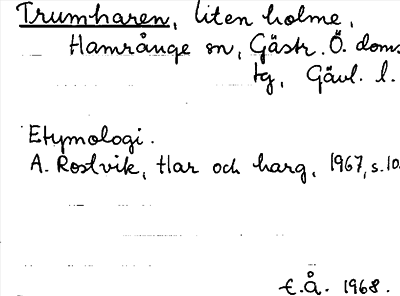 Trumharen, liten holme,
Hamrånge sn, Gästr. Ö. doms
tg, Gävl. l.
Etymologi.
A. Rostvik, Har och harg, 1967, s. 10
E.Å. 1968.